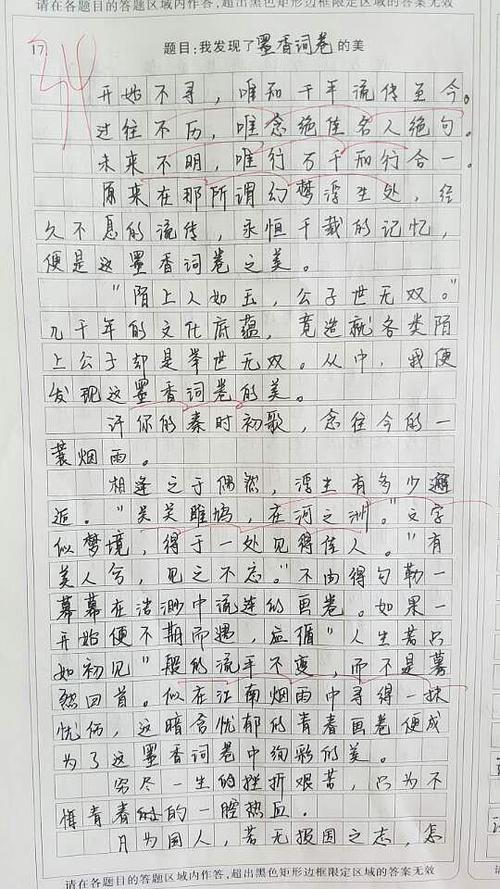 请在各题目的答题区域内作答,超出黑色矩形边框限定区域的答案无效
17. 题目:我发现了墨香词卷的美
开始不寻，唯知千年流传至今。
过往不历，唯念绝佳名人绝句。
未来不明，唯行万千知行合一。
原来在那所谓幻梦浮生处，经
久不息的流传，永恒千载的记忆，
便是这墨香词卷之美。
"陌上人如玉，公子世无双。"
几千年的文化底蕴，竟造就各类陌
上公子却是举世无双。从中，我便
发现这墨香词卷的美。
许你的秦时初歌，念往今的一
蓑烟雨。
相逢之于偶然，浮生有多少邂
逅。"关关雎鸠，在河之洲。"文字
似梦境，得于一处见得佳人。"有
美人兮，见之不忘。"不由得勾勒一
幕幕在浩渺中流连的画卷。如果一
开始便不期而遇，应循"人生若只
如初见"般的流年不变，而不是蓦
然回首。似在江南烟雨中寻得一抹
忧伤，这暗含忧郁的青春画卷便成
为了这墨香词卷中绚彩的美。
穷尽一生的挫折艰苦，只为不
悔青春时的一腔热血。
只为国人，若无报国之志，怎
请在各题目的答题区域内作答,超出黑色矩形边框限定区域的答案无效